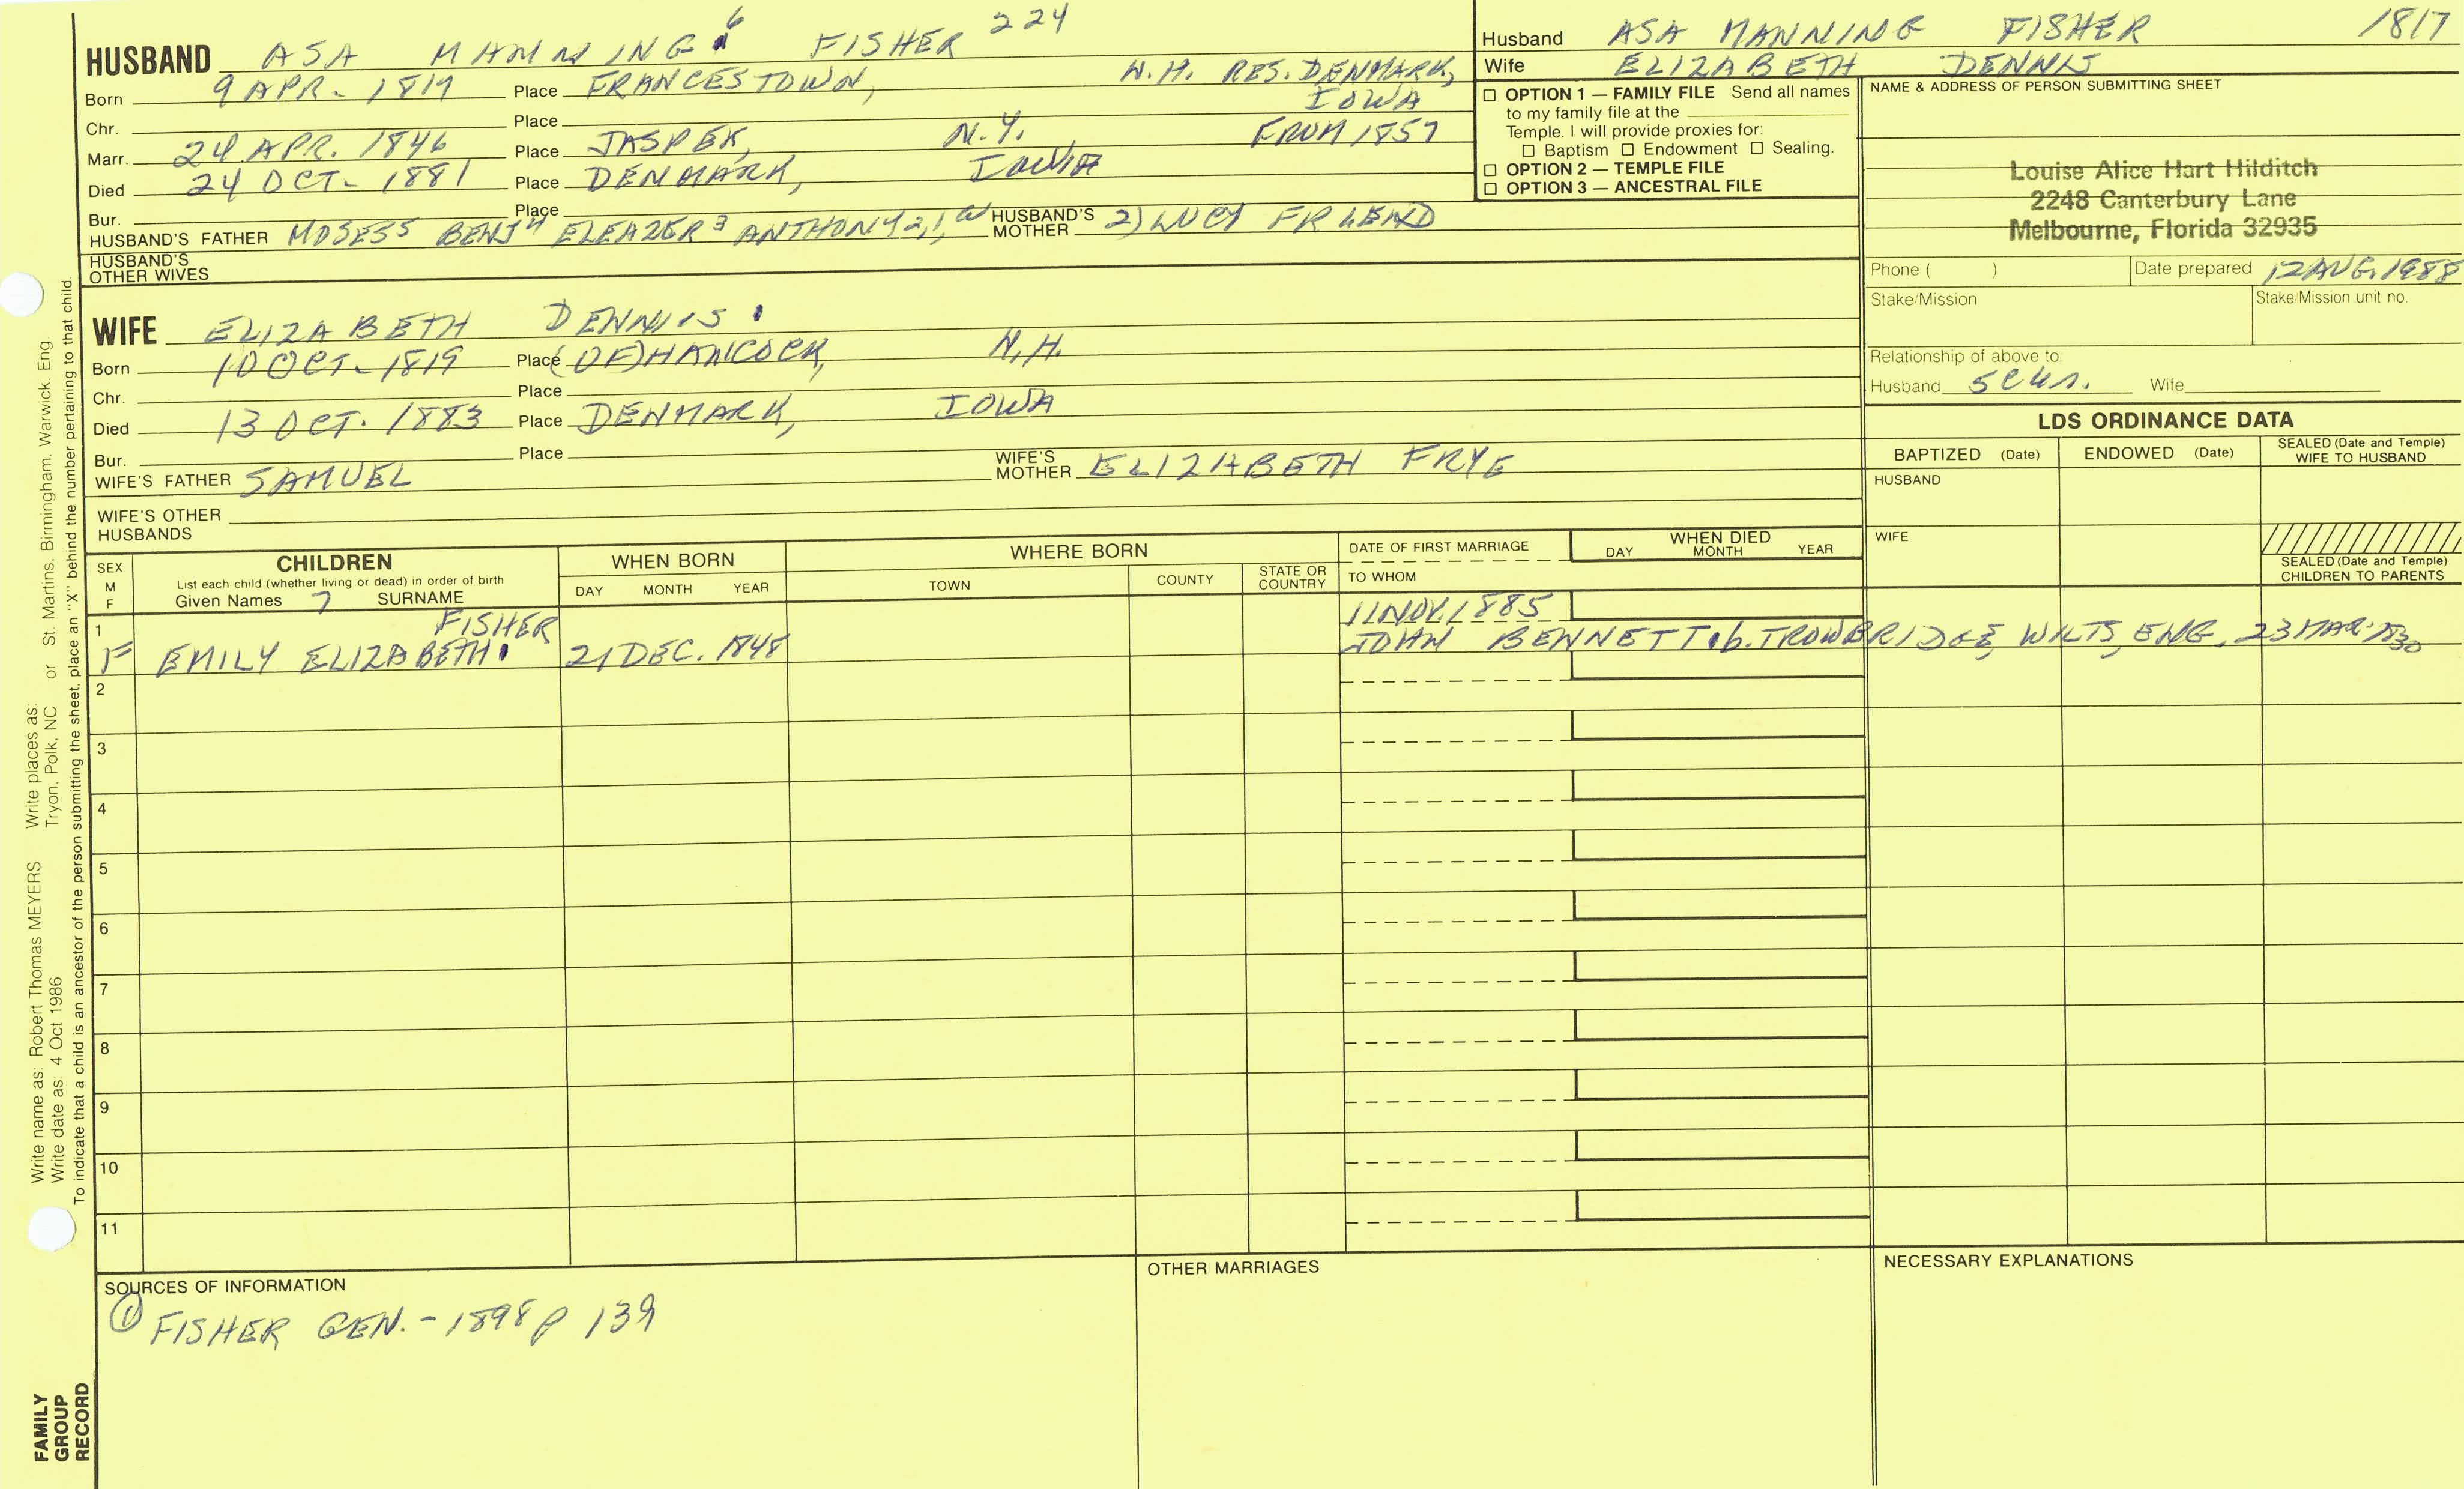 HUSBAND ASA MANNING 6 FISHER 224
Born 9 APR. 1817 Place FRANCESTOWN, N.H. RES. DENMARK, IOWA FROM 1857
Chr. Place
Marr. 24 APR. 1846 Place JASPER, N.Y.
Died 24 OCT. 1881 Place DENMARK, IOWA
Bur. Place
HUSBAND'S FATHER MOSES5 BENJ4 ELEAZER3 ANTHONY2,1, HUSBAND'S MOTHER 2) LUCY FRIEND
HUSBAND'S OTHER WIVES
WIFE ELIZABETH DENNIS
Born 10 OCT. 1819 Place (OF) HANCOCK, N.H.
Chr. Place
Died 13 OCT. 1883 Place DENMARK, IOWA
Bur. Place
WIFE'S FATHER SAMUEL WIFE'S MOTHER ELIZABETH FRYE
WIFE'S OTHER HUSBANDS
Husband ASA MANNING FISHER 1817
Wife ELIZABETH DENNIS
☐ OPTION 1 — FAMILY FILE Send all names
to my family file at the
Temple. I will provide proxies for:
☐ Baptism ☐ Endowment ☐ Sealing.
☐ OPTION 2 — TEMPLE FILE
☐ OPTION 3 — ANCESTRAL FILE
NAME & ADDRESS OF PERSON SUBMITTING SHEET
Louise Alice Hart Hilditch
2248 Canterbury Lane
Melbourne, Florida 32935
Phone ( ) Date prepared 12 AUG. 1988
Stake/Mission Stake/Mission unit no.
Relationship of above to:
Husband 5C4R. Wife
LDS ORDINANCE DATA
BAPTIZED (Date) ENDOWED (Date) SEALED (Date and Temple) WIFE TO HUSBAND
HUSBAND
WIFE
SEALED (Date and Temple) CHILDREN TO PARENTS
SEX M F
CHILDREN
List each child (whether living or dead) in order of birth
Given Names 7 SURNAME
WHEN BORN
DAY MONTH YEAR
WHERE BORN
TOWN COUNTY STATE OR COUNTRY
DATE OF FIRST MARRIAGE
TO WHOM
WHEN DIED
DAY MONTH YEAR
1 FISHER 11 NOV. 1885
F EMILY ELIZABETH 21 DEC. 1848 JOHN BENNETT b. TROWBRIDGE, WILTS, ENG. 23 MAR. 1830
2
3
4
5
6
7
8
9
10
11
SOURCES OF INFORMATION
① FISHER GEN. - 1898 p 139
OTHER MARRIAGES
NECESSARY EXPLANATIONS
Write name as: Robert Thomas MEYERS Write places as:
Write date as: 4 Oct 1986 Tryon, Polk, NC or St. Martins, Birmingham, Warwick, Eng
To indicate that a child is an ancestor of the person submitting the sheet, place an "X" behind the number pertaining to that child.
FAMILY
GROUP
RECORD